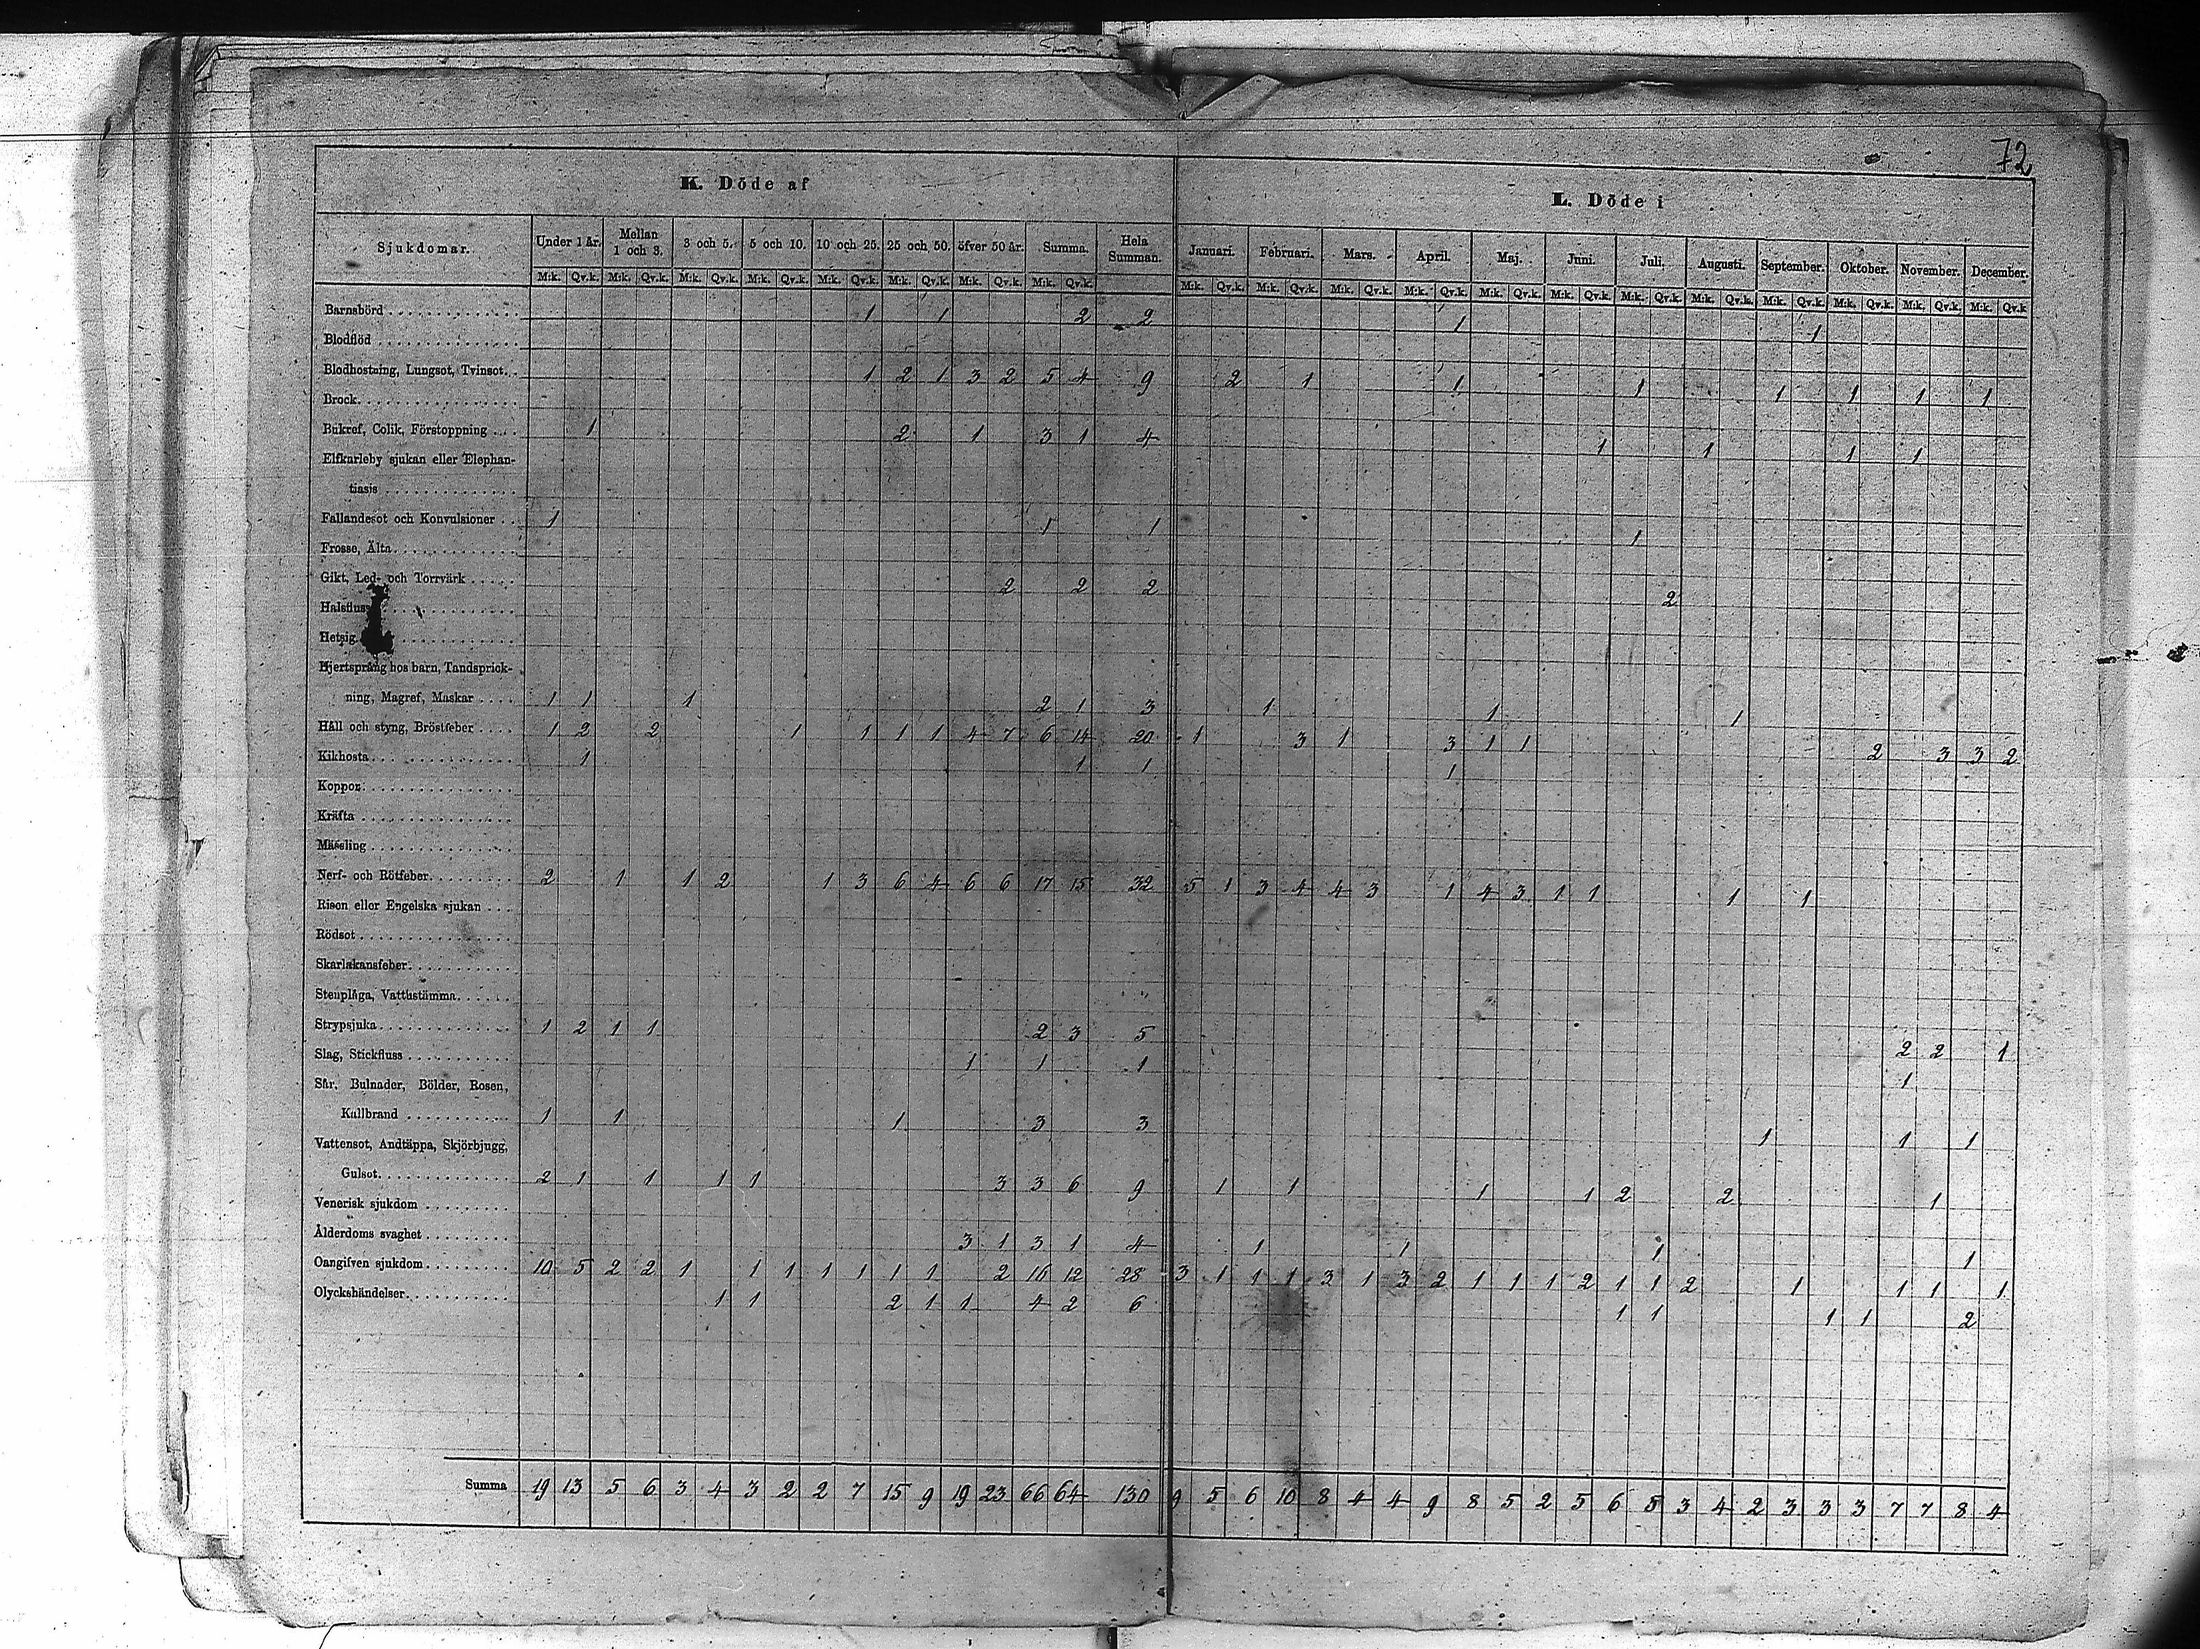 72
K. Döde af
L. Döde i
Sjukdomar. Under 1 år. Mellan 1 och 3. 3 och 5. 5 och 10. 10 och 25. 25 och 50. öfver 50 år. Summa. Hela Summan. Januari. Februari. Mars. April. Maj. Juni. Juli. Augusti. September. Oktober. November. December.
M:k. Qv.k. M:k. Qv.k. M:k. Qv.k. M:k. Qv.k. M:k. Qv.k. M:k. Qv.k. M:k. Qv.k. M:k. Qv.k. M:k. Qv.k. M:k. Qv.k. M:k. Qv.k. M:k. Qv.k. M:k. Qv.k. M:k. Qv.k. M:k. Qv.k. M:k. Qv.k. M:k. Qv.k. M:k. Qv.k. M:k. Qv.k. M:k. Qv.k
Barnsbörd 1 1 2 2 1 1
Blodflöd
Blodhostning, Lungsot, Tvinsot. 1 2 1 3 2 5 4 9 2 1 1 1 1 1 1 1
Brock
Bukref, Colik, Förstoppning 1 2 1 3 1 4 1 1 1 1
Elfkarleby sjukan eller Elephan-
tiasis
Fallandesot och Konvulsioner 1 1 1 1
Frosse, Älta
Gikt, Led- och Torrvärk 2 2 2 2
Halsfluss
Hetsig
Hjertsprång hos barn, Tandsprick-
ning, Magref, Maskar 1 1 1 2 1 3 1 1 1
Håll och styng, Bröstfeber 1 2 2 1 1 1 1 4 7 6 14 20 1 3 1 3 1 1 2 3 3 2
Kikhosta 1 1 1 1
Koppor
Kräfta
Mässling
Nerf- och Rötfeber 2 1 1 2 1 3 6 4 6 6 17 15 32 5 1 3 4 4 3 1 4 3 1 1 1 1
Risen eller Engelska sjukan
Rödsot
Skarlakansfeber
Stenplåga, Vattustämma
Strypsjuka 1 2 1 1 2 3 5 2 2 1
Slag, Stickfluss 1 1 1 1
Sår, Bulnader, Bölder, Rosen,
Kallbrand 1 1 1 3 3 1 1 1
Vattensot, Andtäppa, Skjörbjugg,
Gulsot 2 1 1 1 1 3 3 6 9 1 1 1 1 2 2 1
Venerisk sjukdom
Ålderdoms svaghet 3 1 3 1 4 1 1 1 1
Oangifven sjukdom 10 5 2 2 1 1 1 1 1 1 1 2 16 12 28 3 1 1 1 3 1 3 2 1 1 1 2 1 1 2 1 1 1 1
Olyckshändelser 1 1 2 1 1 4 2 6 1 1 1 1 2
Summa 19 13 5 6 3 4 3 2 2 7 15 9 19 23 66 64 130 9 5 6 10 8 4 4 9 8 5 2 5 6 5 3 4 2 3 3 3 7 7 8 4